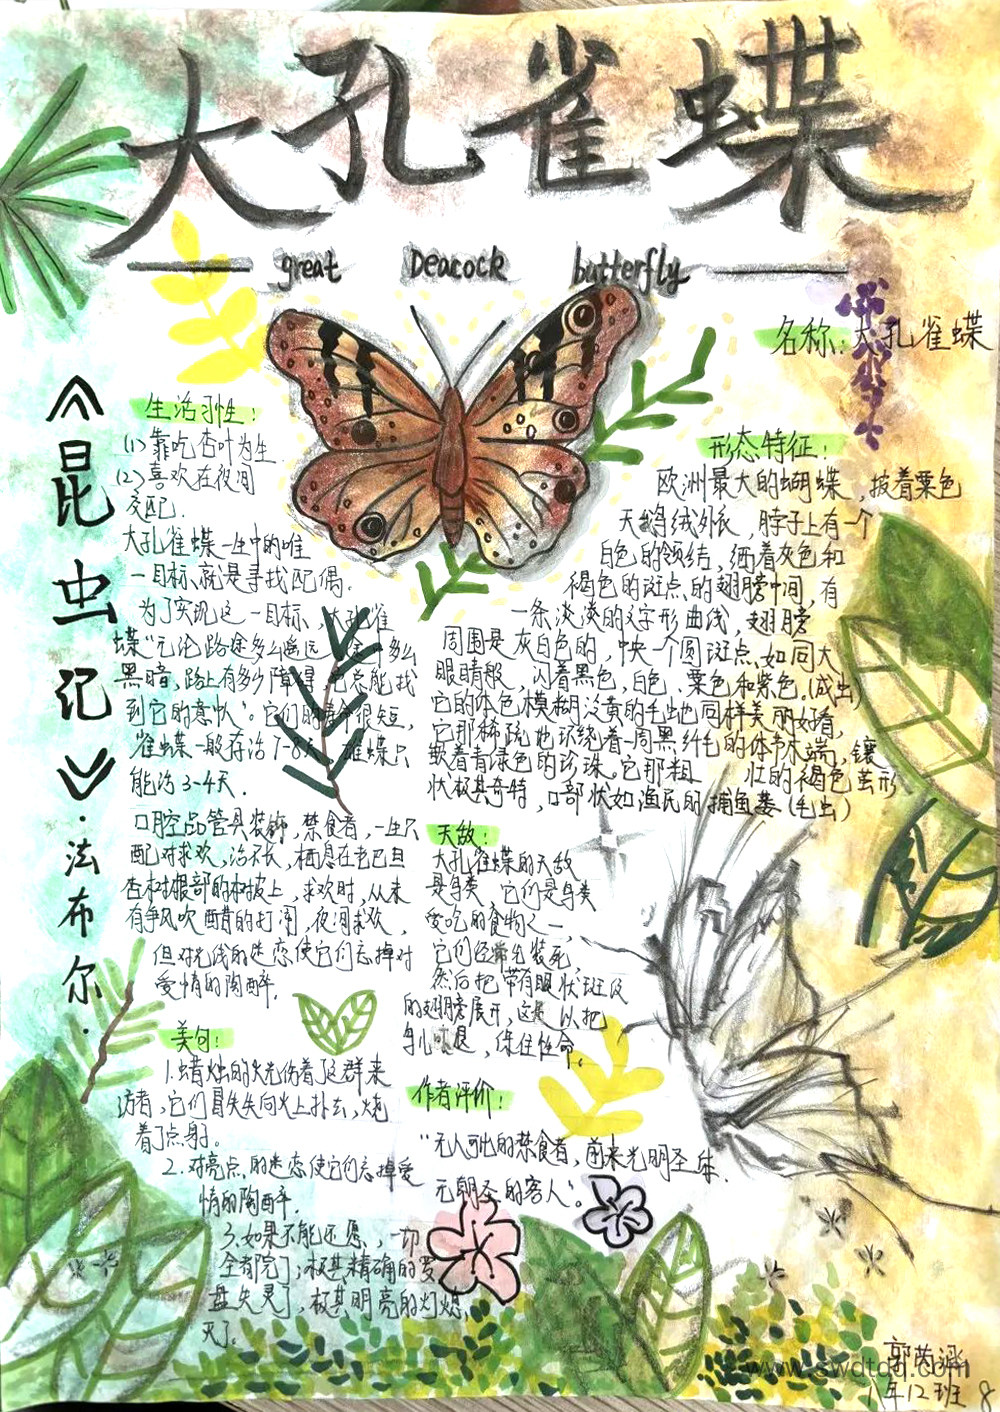 大孔雀蝶
great Deacock butterfly
《昆虫记》·法布尔·
名称:大孔雀蝶
生活习性:
(1)靠吃杏叶为生
(2)喜欢在夜间
交配.
大孔雀蝶一生中的唯
一目标、就是寻找配偶.
为了实现这一目标,大孔雀
蝶"无论路途多么遥远,途中多么
黑暗,路上有多少障碍,它总能找
到它的意中人".它们的寿命很短,
雀蝶一般存活7-8天,雌蝶只
能活3-4天.
口腔器管具装饰,禁食者,一生只
配对求欢,活不长,栖息在老巴旦
杏树根部的树坡上,求欢时,从未
有争风吹醋的打闹,夜间求欢,
但对光线的迷恋使它们忘掉对
爱情的陶醉.
美句:
1.蜡烛的火光伤着了这群来
访者,它们冒失失向火上扑去,烧
着了点身。
2.对亮点,的迷恋使它们忘掉爱
情的陶醉.
3.如果不能还愿、,一切
全都完了;极其精确的罗
盘失灵了,极其明亮的灯熄,
灭了。
形态特征:
欧洲最大的蝴蝶,披着栗色
天鹅绒外衣,脖子上有一个
白色的领结,洒着灰色和
褐色的斑点、的翅膀中间,有
一条淡淡的之字形曲线,翅膀
周围是灰白色的,中央一个圆斑点、如同大
眼睛般 闪着黑色,白色、栗色和紫色.(成虫)
它的体色模糊泛黄的毛虫也同样美丽好看,
它那稀疏地环绕着一周黑纤毛的体节末端,镶
嵌着青绿色的珍珠.它那粗 壮的褐色茧形
状极其奇特,口部状如渔民的捕鱼篓(毛虫)
天敌:
大孔雀蝶的天敌
是鸟类 它们是鸟类
爱吃的食物之一,
它们经常先装死,
然后把带有眼状斑纹
的翅膀展开,这是以把
鸟儿吓退,保住性命。
作者评价:
"无人可比的禁食者,前来光明圣体
无朝圣的客人".
郭芮
8年12班 8
www.swdtdq.com